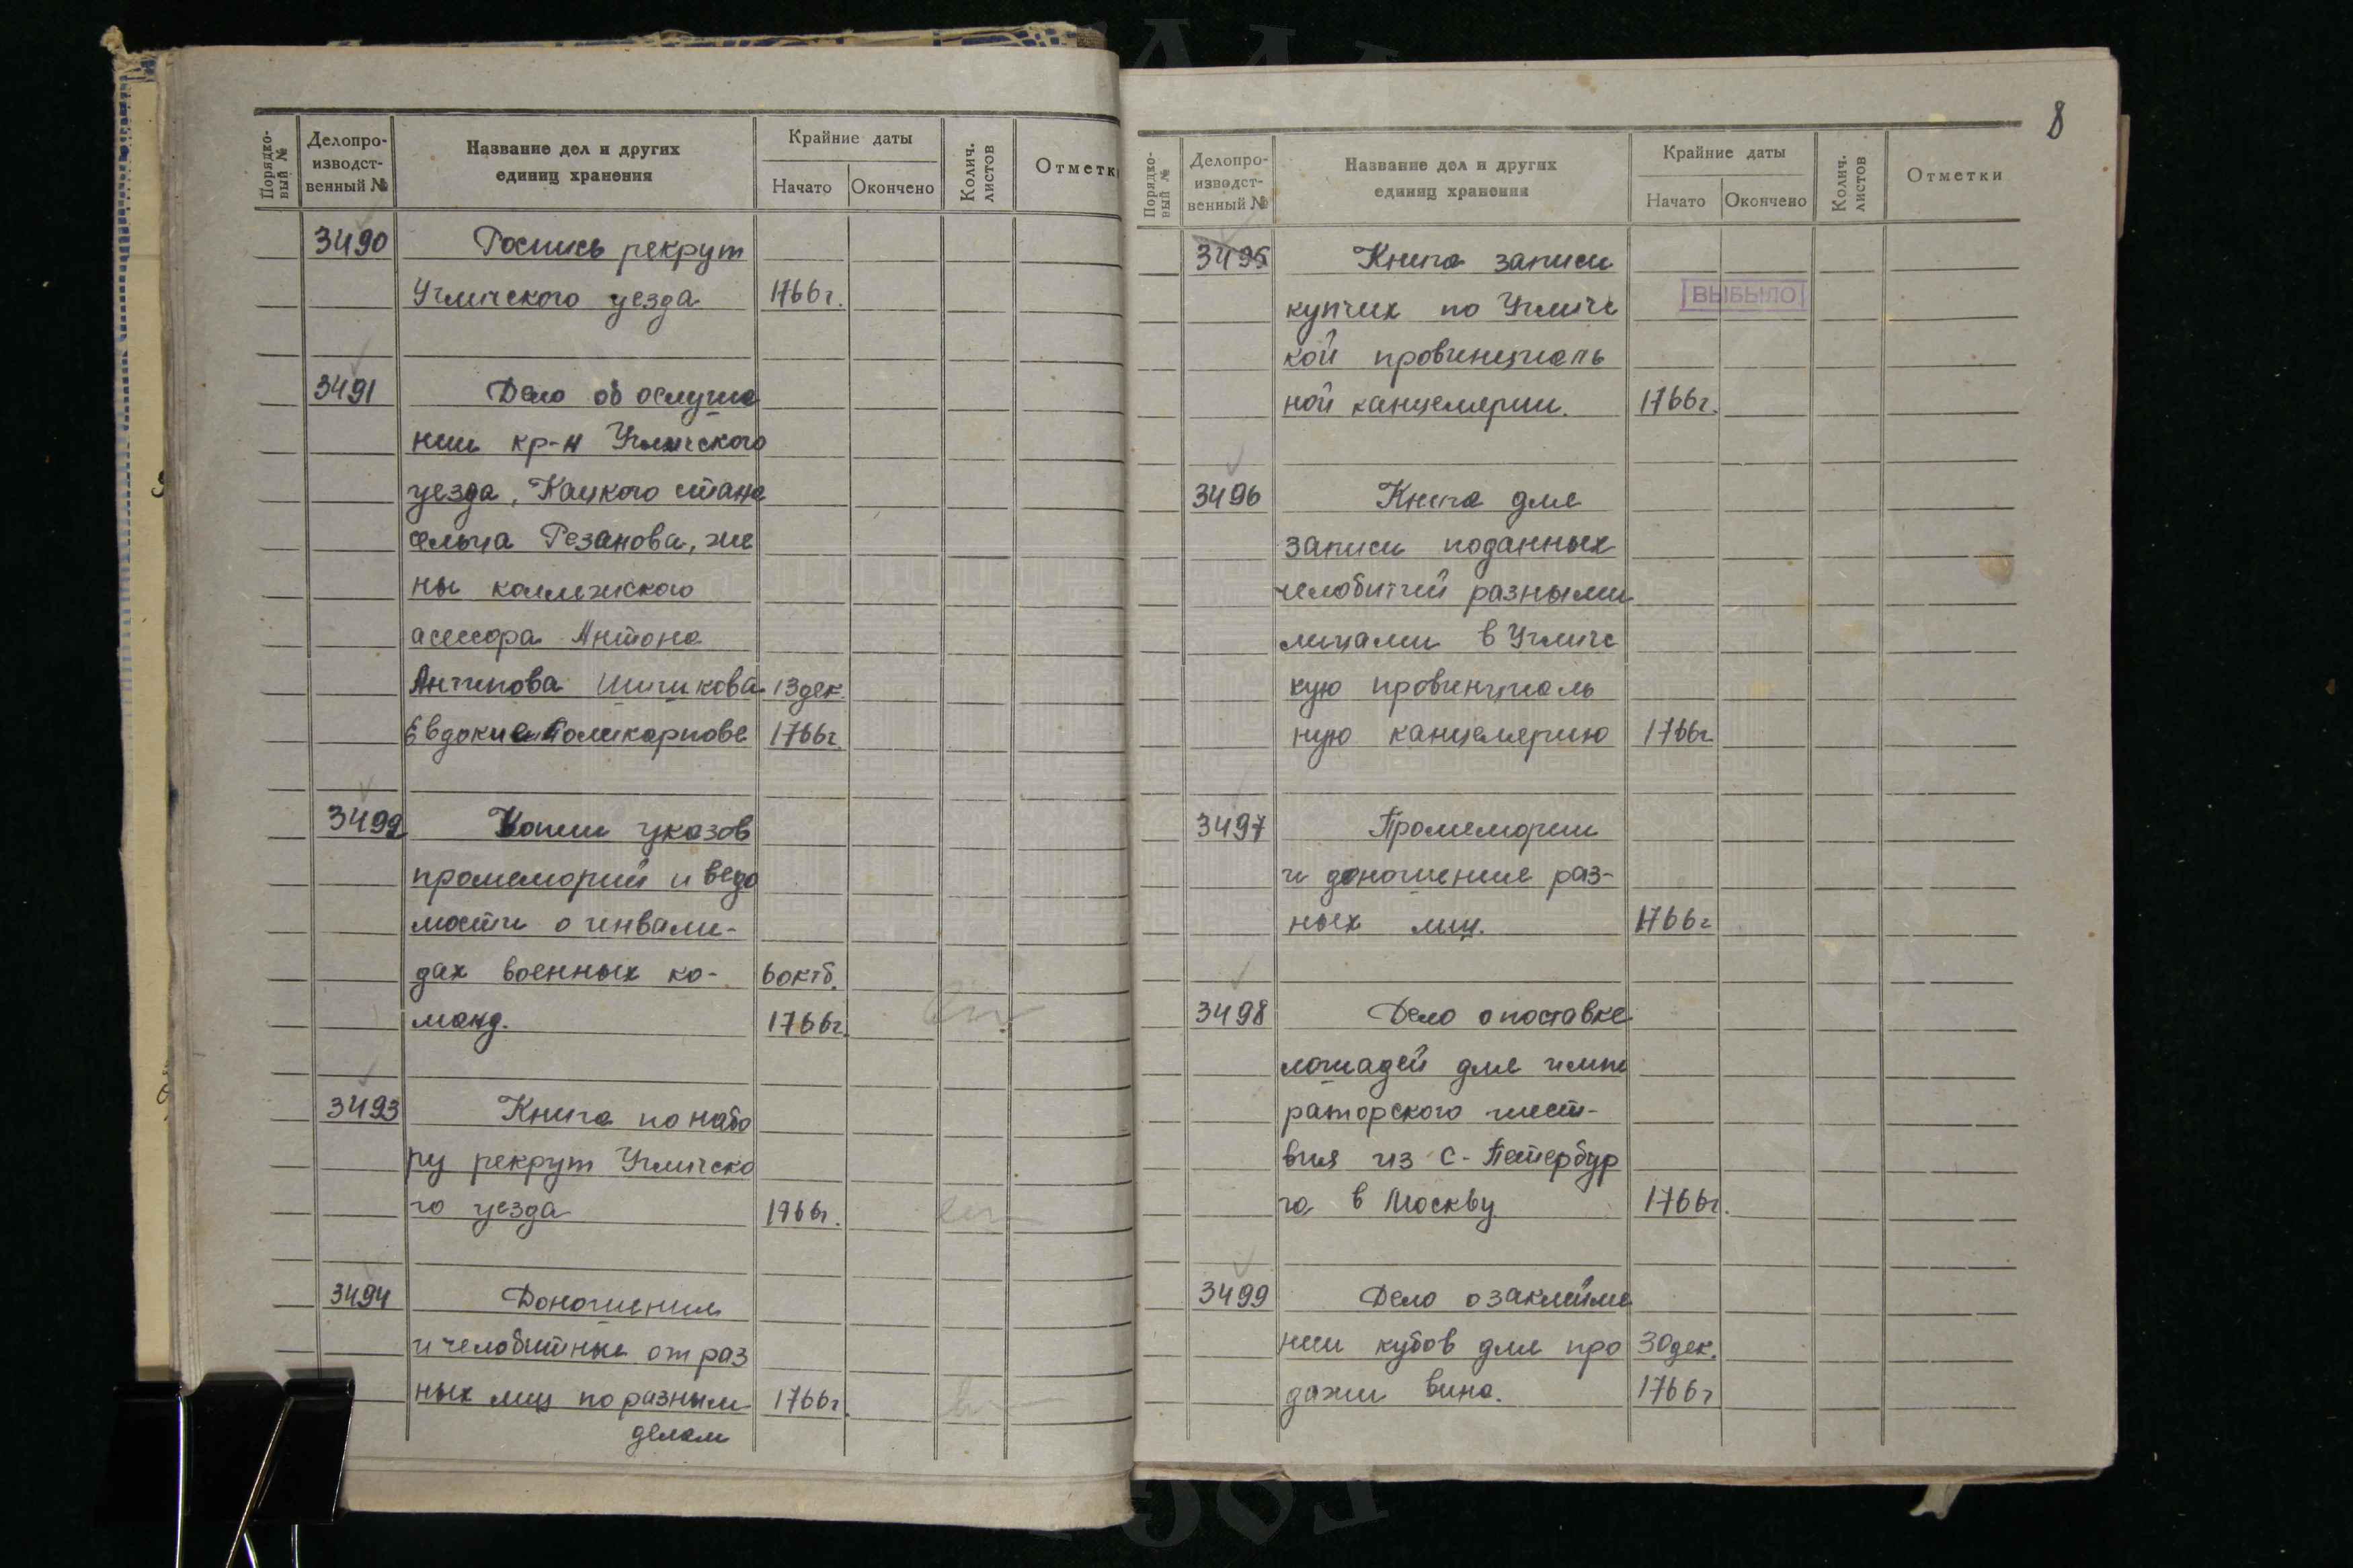 Порядко-
вый №
Делопро-
изводст-
венный №
Название дел и других
единиц хранения
Крайние даты
Начато
Окончено
Колич.
листов
Отметк
3490 Роспись рекрут
Угличского уезда 1766г.
3491 Дело об ослуша
нии кр-н Угличского
уезда, Кацкого стана
сельца Резанова, же
ны коллежского
асессора Антона
Антипова Шишкова 13дек.
Евдокии Поликарпове 1766г.
3492 Копии указов
промеморий и ведо
мости о инвали-
дах военных ко- 6октб.
манд. 1766г.
3493 Книга по набо
ру рекрут Угличско
го уезда 1766г.
3494 Доношения
и челобитные от раз
ных лиц по разным 1766г.
делам
8
Порядко-
вый №
Делопро-
изводст-
венный №
Название дел и других
единиц хранения
Крайние даты
Начато
Окончено
Колич.
листов
Отметки
3495 Книга записи
купчих по Угличс ВЫБЫЛО
кой провинциаль
ной канцелярии. 1766г.
3496 Книга для
записи поданных
челобитий разными
лицами в Угличс
кую провинциаль
ную канцелярию 1766г
3497 Промемории
и доношение раз-
ных лиц. 1766г
3498 Дело о поставке
лошадей для импе
раторского шест-
вия из С-Петербур
га в Москву 1766г.
3499 Дело о заклейме
нии кубов для про 30дек.
дажи вина. 1766г